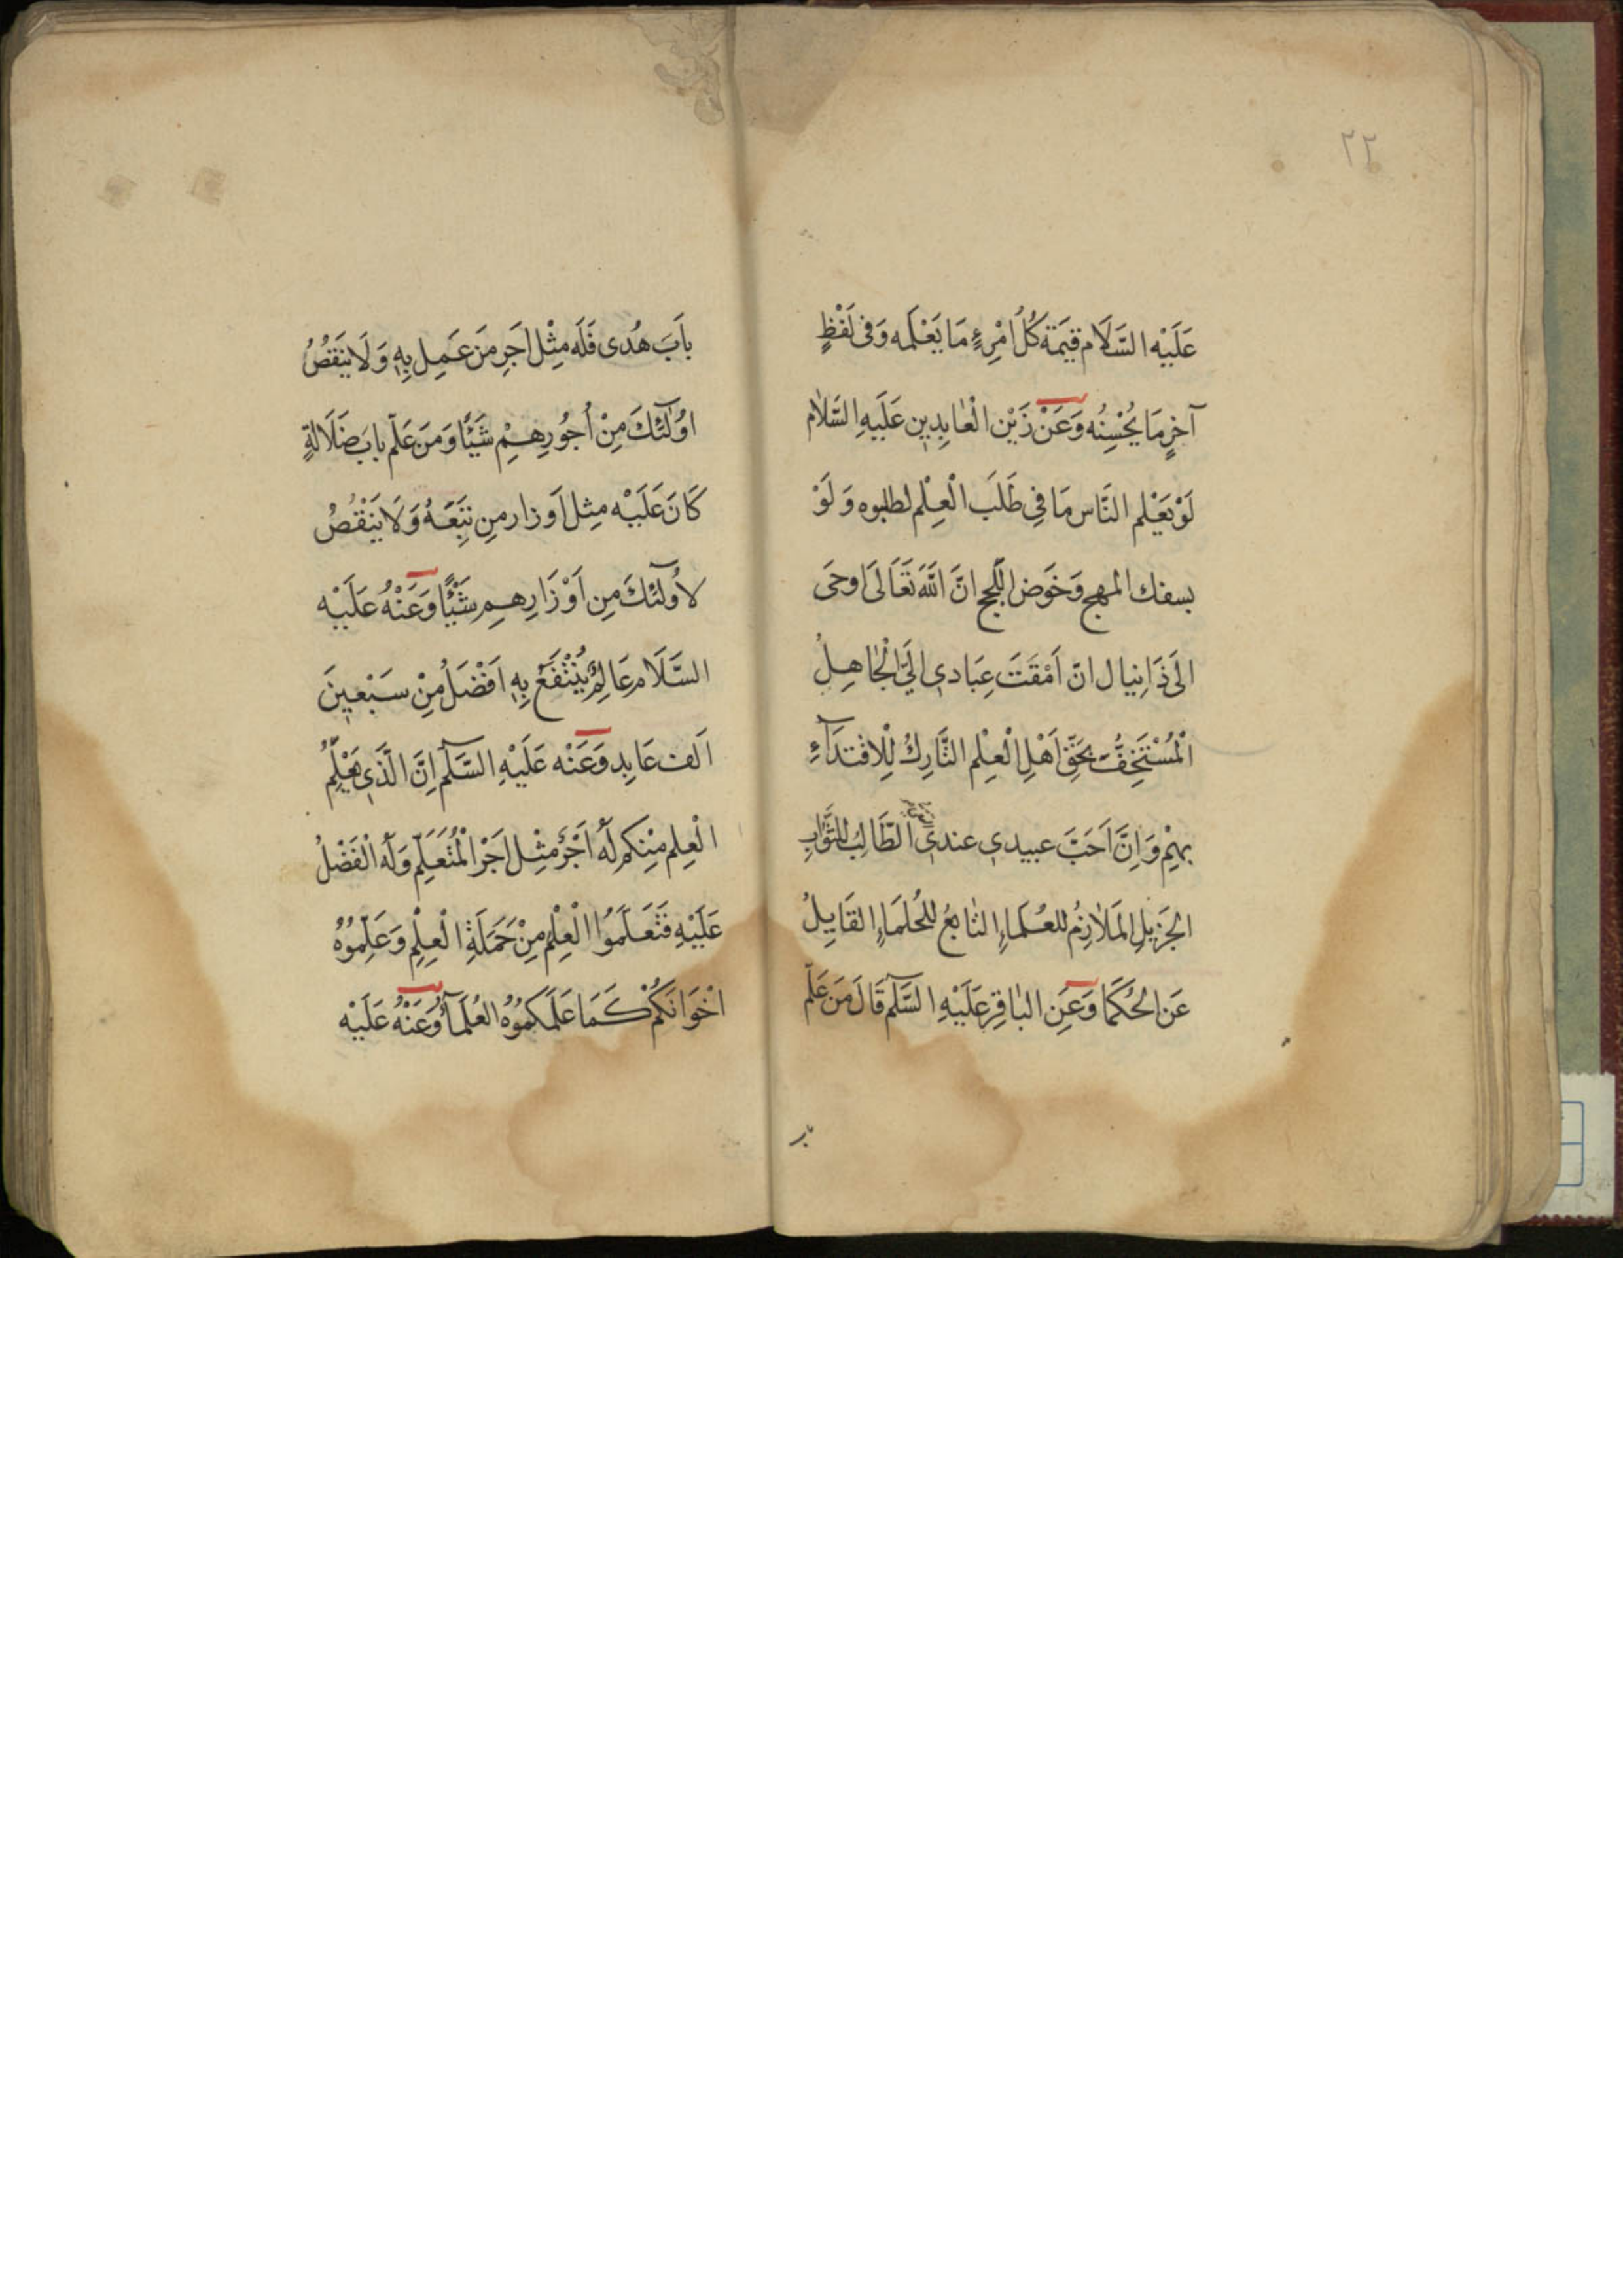 ٢٢
عَلَيْه السَّلَام قيَمَة كُلّ امْرِءٍ مَا يَعْلَمه وَفى لَفْظٍ
آخرٍ مَا يُحْسِنُه وَعَنْ زَيْن الْعٰابِدِين عَلَيهِ السَّلام
لَوْ يَعْلم النَّاس مَا فِي طَلَبَ الْعِلْم لطلبوه وَ لَوْ
بسفك المهج وَخَوَض اللّجج انَّ اللَّهَ تَعَالَى اوحَى
الَى دَانِيال انّ اَمْقَتَ عِبَادى الَيَّ الْجٰاهِلُ
الْمُسْتَخِفُّ بَحَقّ اَهْلِ الْعِلْم التَّارِكُ لِلْاقْتدَآءِ
بهِمْ وَ اِنَّ اَحَبَّ عبيدى عندى الطَّالِبُ للثَّوٰابِ
الجَزيلِ المَلازِمُ للعُلَمَاءِ التٰابعُ للحُلمَاءِ القَابِلُ
عَن الحُكَمَا وَعَنِ البٰاقِر عَلَيْهِ السَّلٰم قَالَ مَن عَلّم
بٰابَ هُدى فَلَه مثْل اَجَرِ مَن عَمِل بِهِ وَ لَا يَنقصُ
اوُلٰئكَ مِنْ اُجُورِهِمْ شَيْئًا وَ مَن عَلّم بابَ ضَلَالةٍ
كَانَ عَلَيْه مِثل اَوزار مِن تبِعَهُ وَ لَا يَنْقصُ
لاُولٰئكَ مِن اَوْزَارِهمِ شَيْئًا وَعَنْهُ عَلَيْه
السَّلَام عَالِمٌ يُنْتَفَعُ بِهِ اَفْضَلُ مِنْ سَبْعينَ
اَلف عَابِد وَعَنْه عَلَيْهِ السَّلٰم اِنَّ الَّذى يُعَلِّمُ
الْعِلم مِنكم لَهُ اَجْرٌ مثْل اَجْر الْمُتَعَلّم وَلَهُ الْفَضْلُ
عَلَيْهِ فَتَعَلَّمُوا الْعِلْم مِنْ حَمَلَةِ الْعِلْمِ وَ عَلِّموُهُ
اخْوَانَكُمْ كَمَا عَلَّمَكموُهُ العُلَمَآءُ وَعَنْهُ عَلَيْه